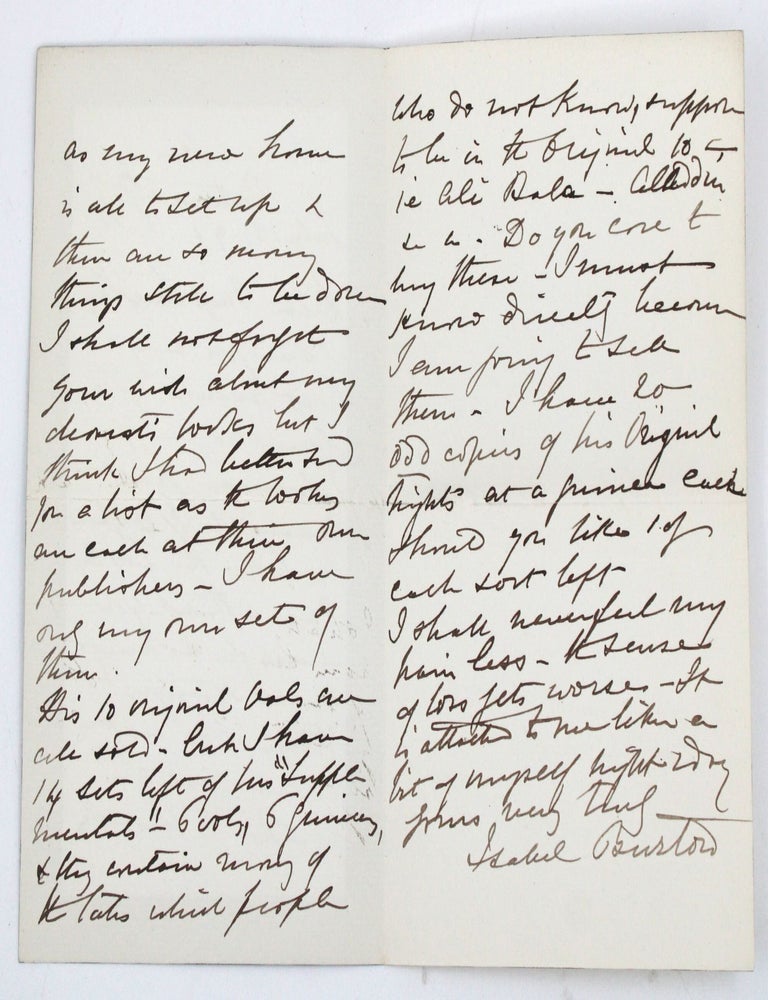 as my new home
is all to set up &
there are so many
things still to be done
I shall not forget
your wish about my
domestic books but I
think I had better send
for a list as the books
are each at their own
publishers – I have
only my own sets of
them.
His 10 original Vols are
all sold – but I have
14 sets left of his "Supple
mentals" – 6 vols, 6 guineas,
& they contain many of
the tales which people
who do not know, suppose
to be in the Original 10
ie Ali Baba – Alladdin
&c &c. Do you care to
buy these – I must
know directly because
I am going to sell
them – I have 20
odd copies of his Original
Nights at a guinea each
Should you like 1 of
each sort left
I shall never feel my
pain less – the sense
of loss gets worse – It
is attached to me like a
bit of myself night & day
yours very truly
Isabel Burton